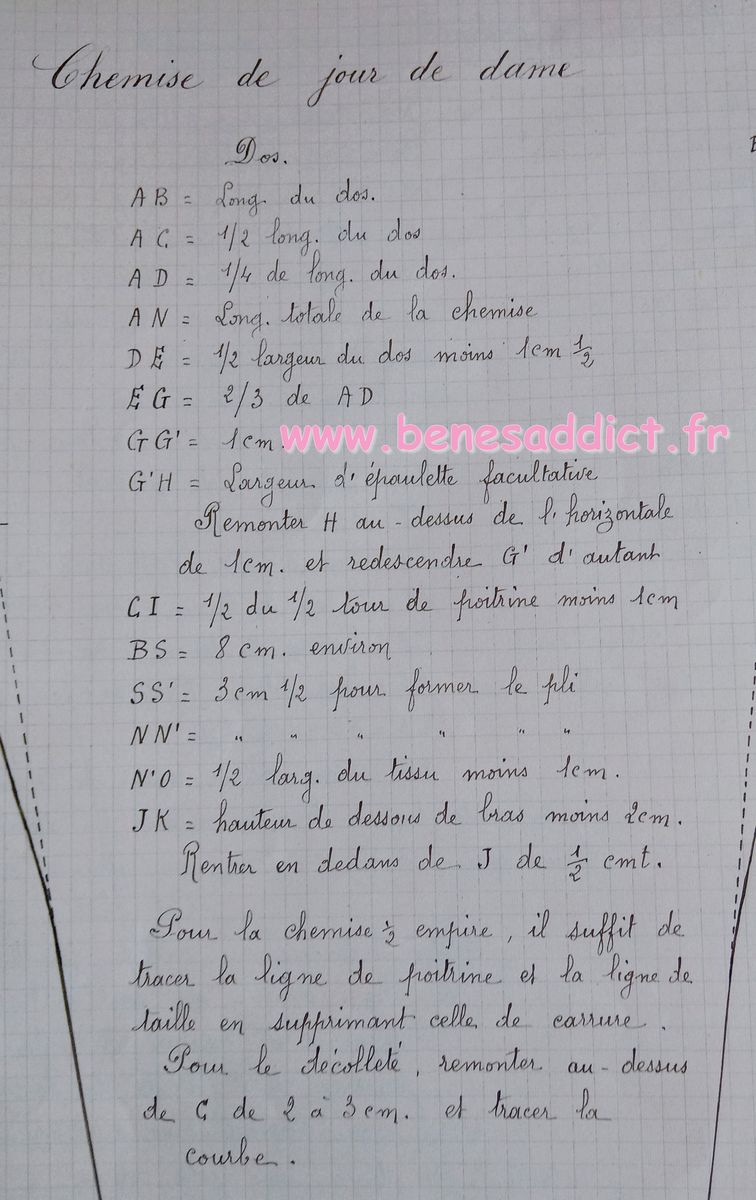 Chemise de jour de dame
Dos.
AB = Long. du dos.
AC = 1/2 long. du dos
AD = 1/4 de long. du dos.
AN = Long. totale de la chemise
DE = 1/2 largeur du dos moins 1cm 1/2
EG = 2/3 de AD
GG' = 1cm.
www.benesaddict.fr
G'H = Largeur d'épaulette facultative
Remonter H au-dessus de l'horizontale
de 1cm. et redescendre G' d'autant
CI = 1/2 du 1/2 tour de poitrine moins 1cm
BS = 8 cm. environ
SS' = 3cm 1/2 pour former le pli
NN' = " " " " " "
N'O = 1/2 larg. du tissu moins 1cm.
JK = hauteur de dessous de bras moins 2cm.
Rentrer en dedans de J de 1/2 cmt.
Pour la chemise 1/2 empire, il suffit de
tracer la ligne de poitrine et la ligne de
taille en supprimant celle de carrure.
Pour le décolleté, remonter au-dessus
de C de 2 à 3cm. et tracer la
courbe.